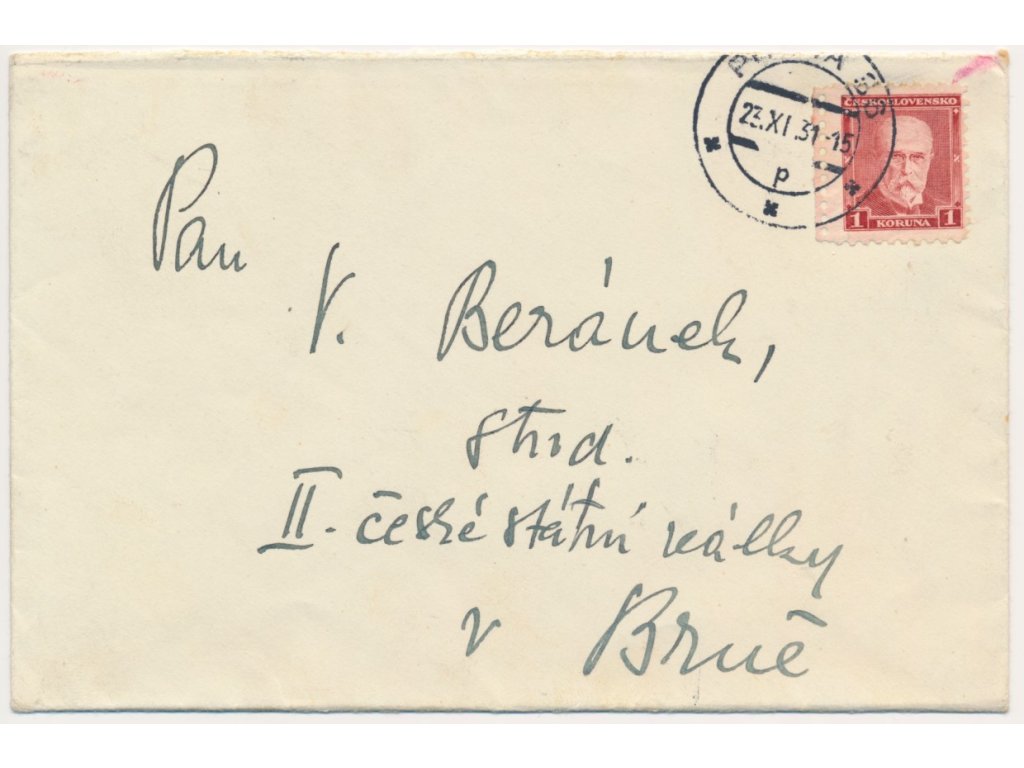 23.XI.31-15
p
ČESKOSLOVENSKO
1 KORUNA 1
Pan
V. Beránek,
stud.
II. české státní reálky
v Brně